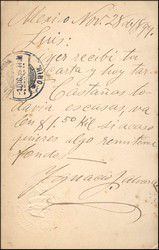 Mexico Nov. 28 de 1899.
Luis:
Ayer recibi tu
carta y hoy tar-
Castañas to-
davia escasas, va-
len $1.50 Kil si acaso
quieres algo remiteme
fondos
Ignacio